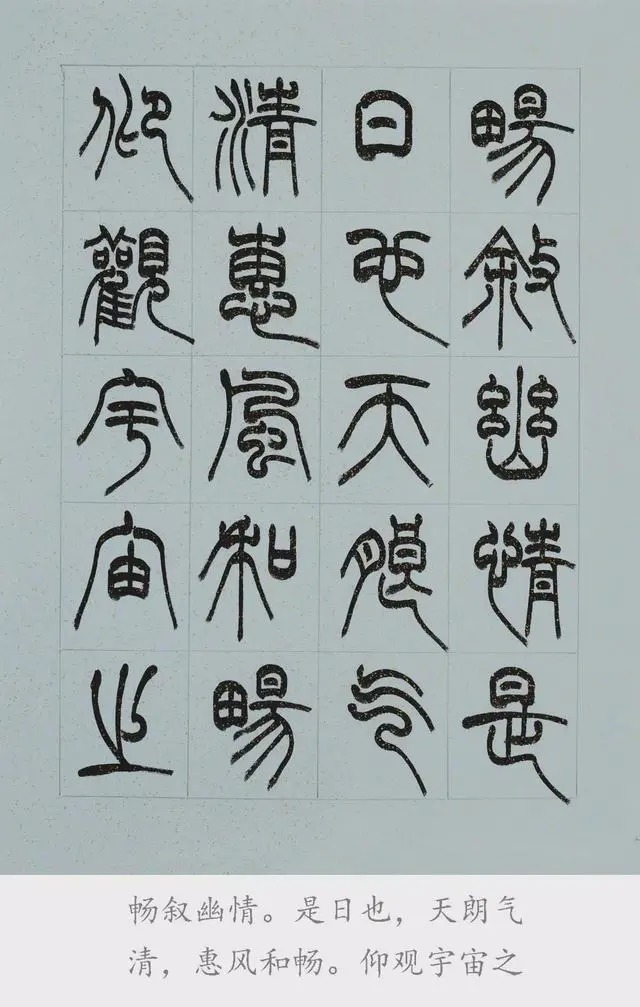 暢敘幽情是
日也天朗气
清惠風和暢
仰觀宇宙之
畅叙幽情。是日也，天朗气
清，惠风和畅。仰观宇宙之